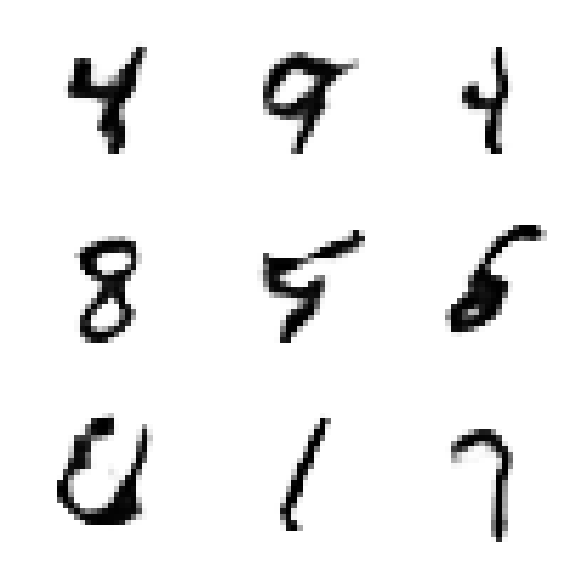 4 9 4
8 5 6
0 1 7